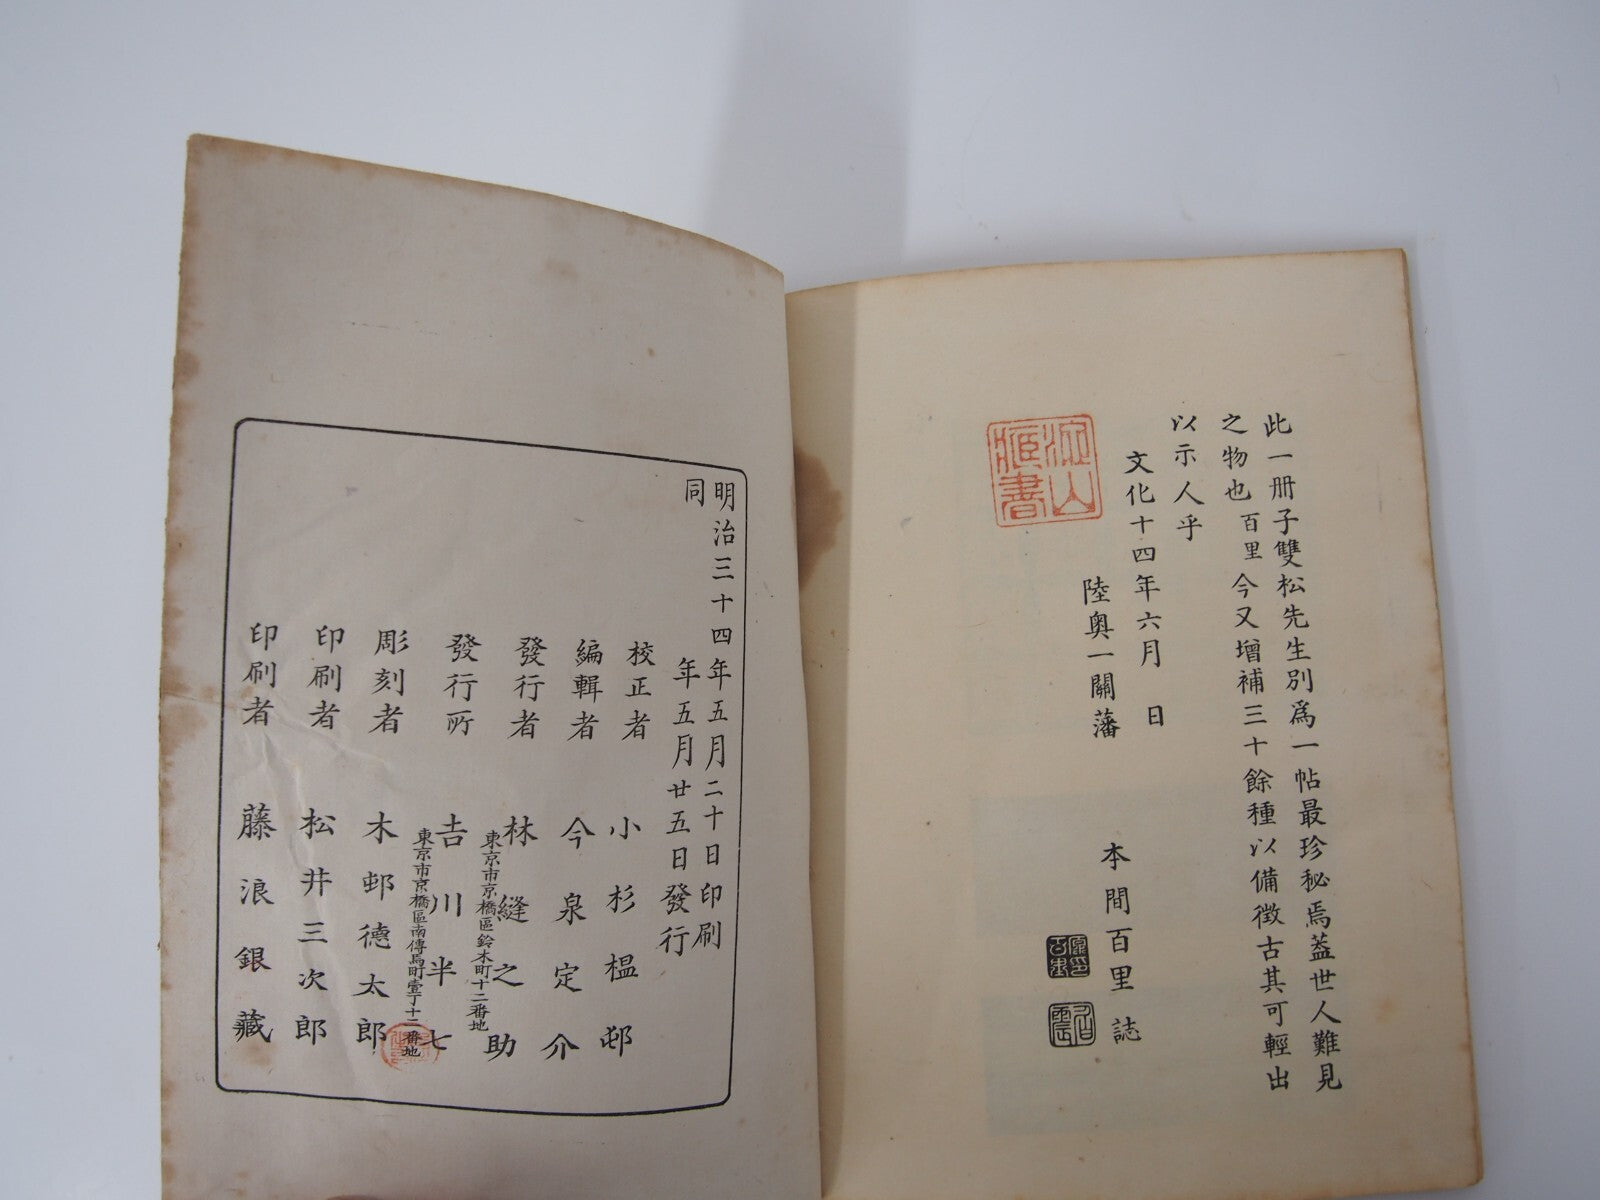 此一冊子雙松先生別爲一帖最珍秘焉蓋世人難見
之物也百里今又增補三十餘種以備徴古其可輕出
以示人乎
文化十四年六月　日
陸奥一關藩　本間百里誌
明治三十四年五月二十日印刷
同　　　　年五月廿五日發行
校正者　小杉榲邨
編輯者　今泉定介
發行者　林縫之助
東京市京橋區鈴木町十二番地
發行所　吉川半七
東京市京橋區南傳馬町壹丁十二番地
彫刻者　木邨德太郎
印刷者　松井三次郎
印刷者　藤浪銀藏